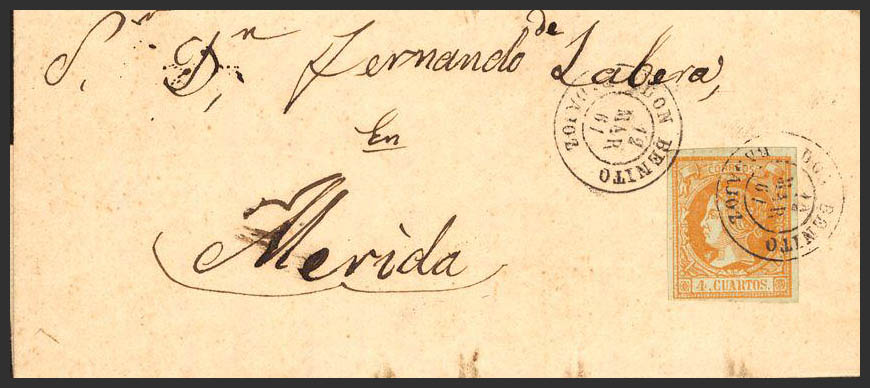 Sr. Dn. Fernando de Labera,
en
Merida
DON BENITO
BADAJOZ
12
MAR
61
DON BENITO
BADAJOZ
12
MAR
61
4. CUARTOS.